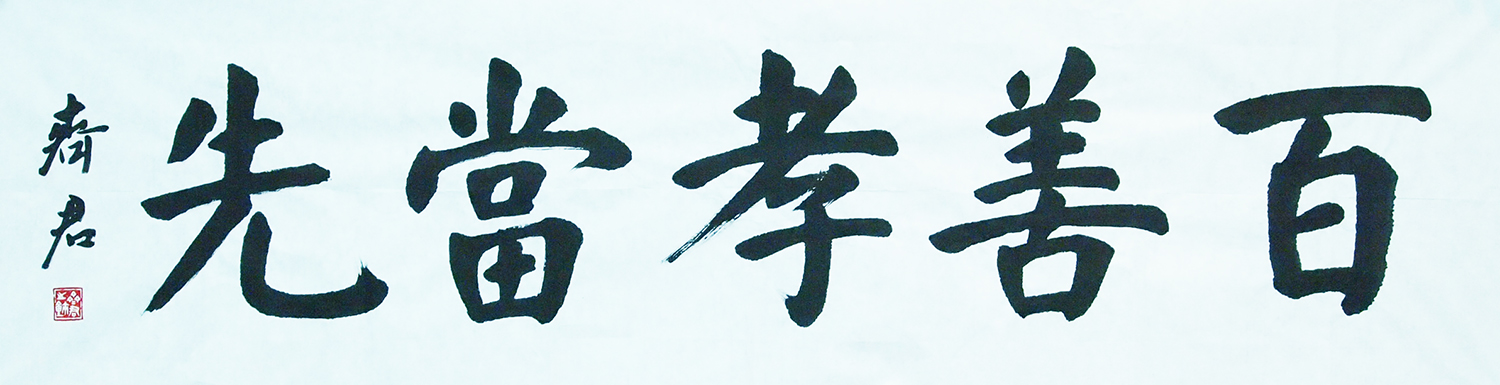 百善孝當先
齊君